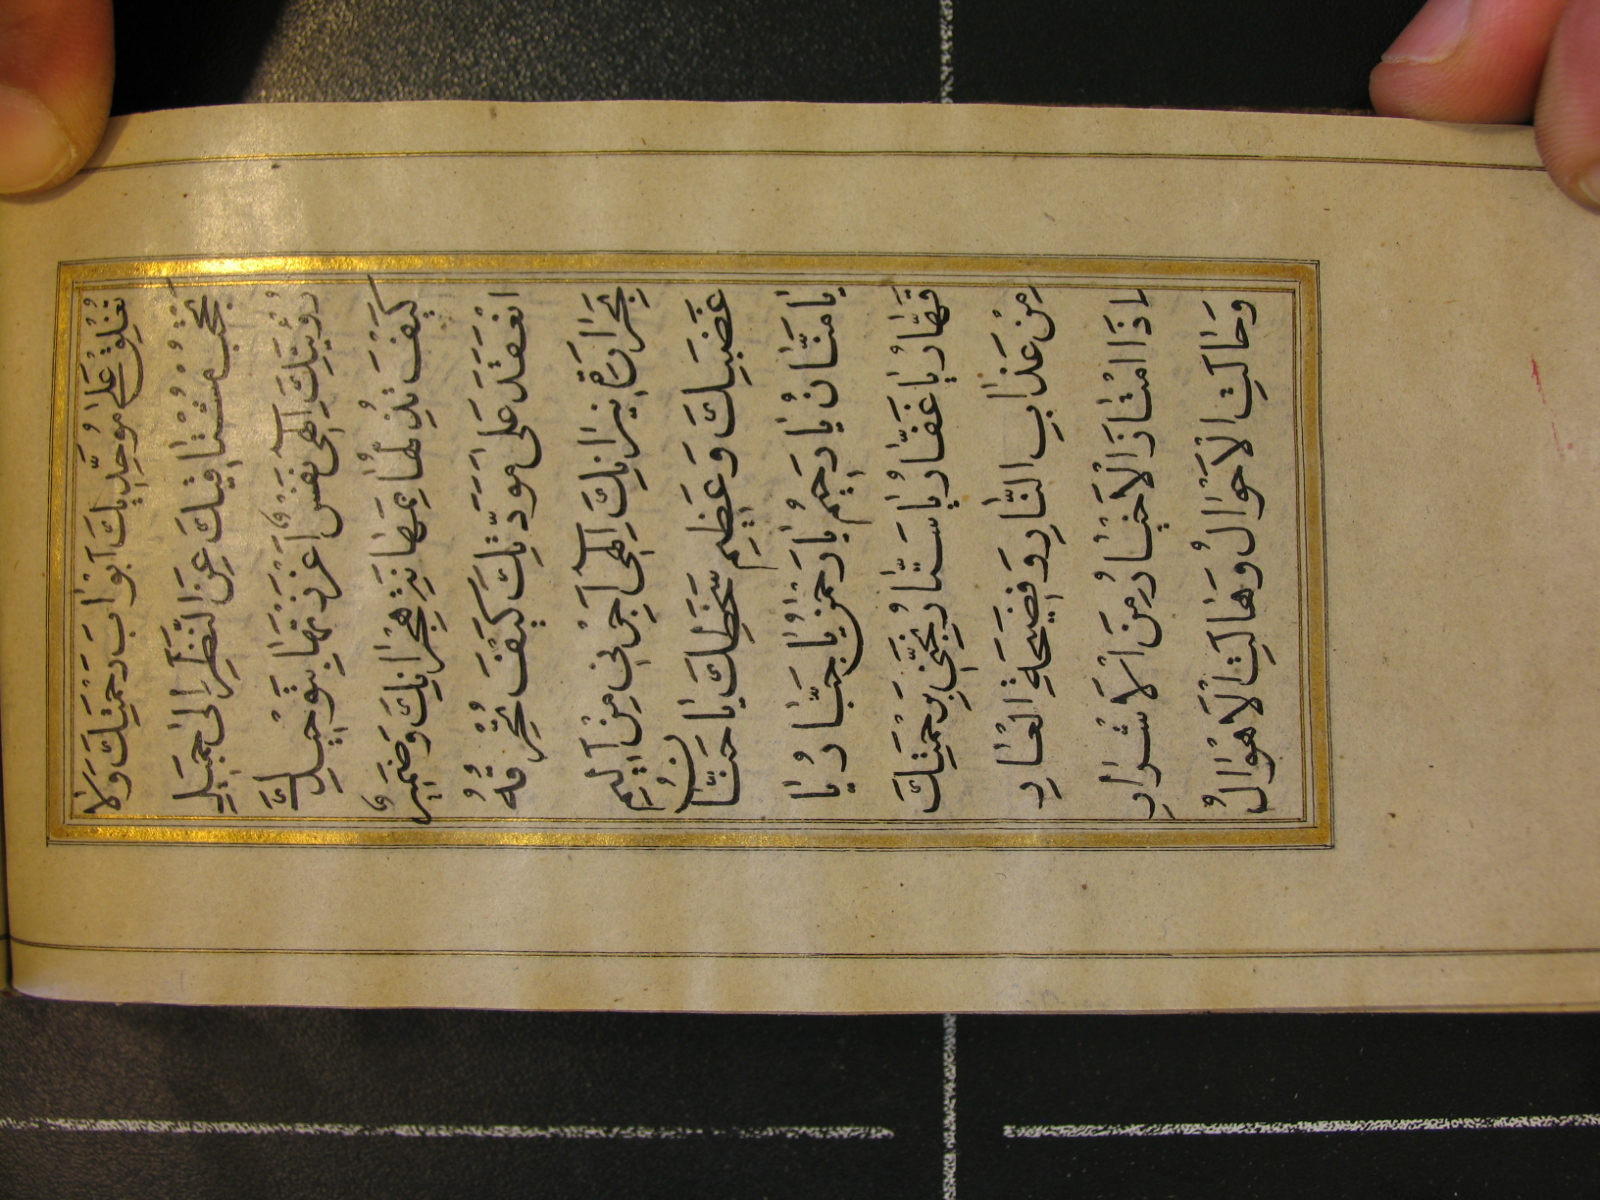 تُغْلِقْ عَلٰى مُوَحِّدِيكَ اَبْوَابَ رَحْمَتِكَ وَلَا
تَحْجُبْ مُشْتَاقِيكَ عَنِ النَّظَرِ اِلٰى جَمِيلِ
رُؤْيَتِكَ اِلٰهِى نَفْسٌ اَعْزَزْتَهَا بِتَوْحِيدِكَ
كَيْفَ تُذِلُّهَا بِمَهَانَةِ هِجْرَانِكَ وَضَمِيرٌ
انْعَقَدَ عَلٰى مَوَدَّتِكَ كَيْفَ تُحْرِقُهُ
بِحَرَارَةِ نِيرَانِكَ اِلٰهِى اَجِرْنِى مِنْ اَلِيمِ
غَضَبِكَ وَعَظِيمِ سَخَطِكَ يَا حَنَّانُ
يَا مَنَّانُ يَا رَحِيمُ يَا رَحْمٰنُ يَا جَبَّارُ يَا
قَهَّارُ يَا غَفَّارُ يَا سَتَّارُ نَجِّنِى بِرَحْمَتِكَ
مِنْ عَذَابِ النَّارِ وَفَضِيحَةِ الْعَارِ
اِذَا امْتَازَ الْاَخْيَارُ مِنَ الْاَشْرَارِ
وَحَالَتِ الْاَحْوَالُ وَهَالَتِ الْاَهْوَالُ